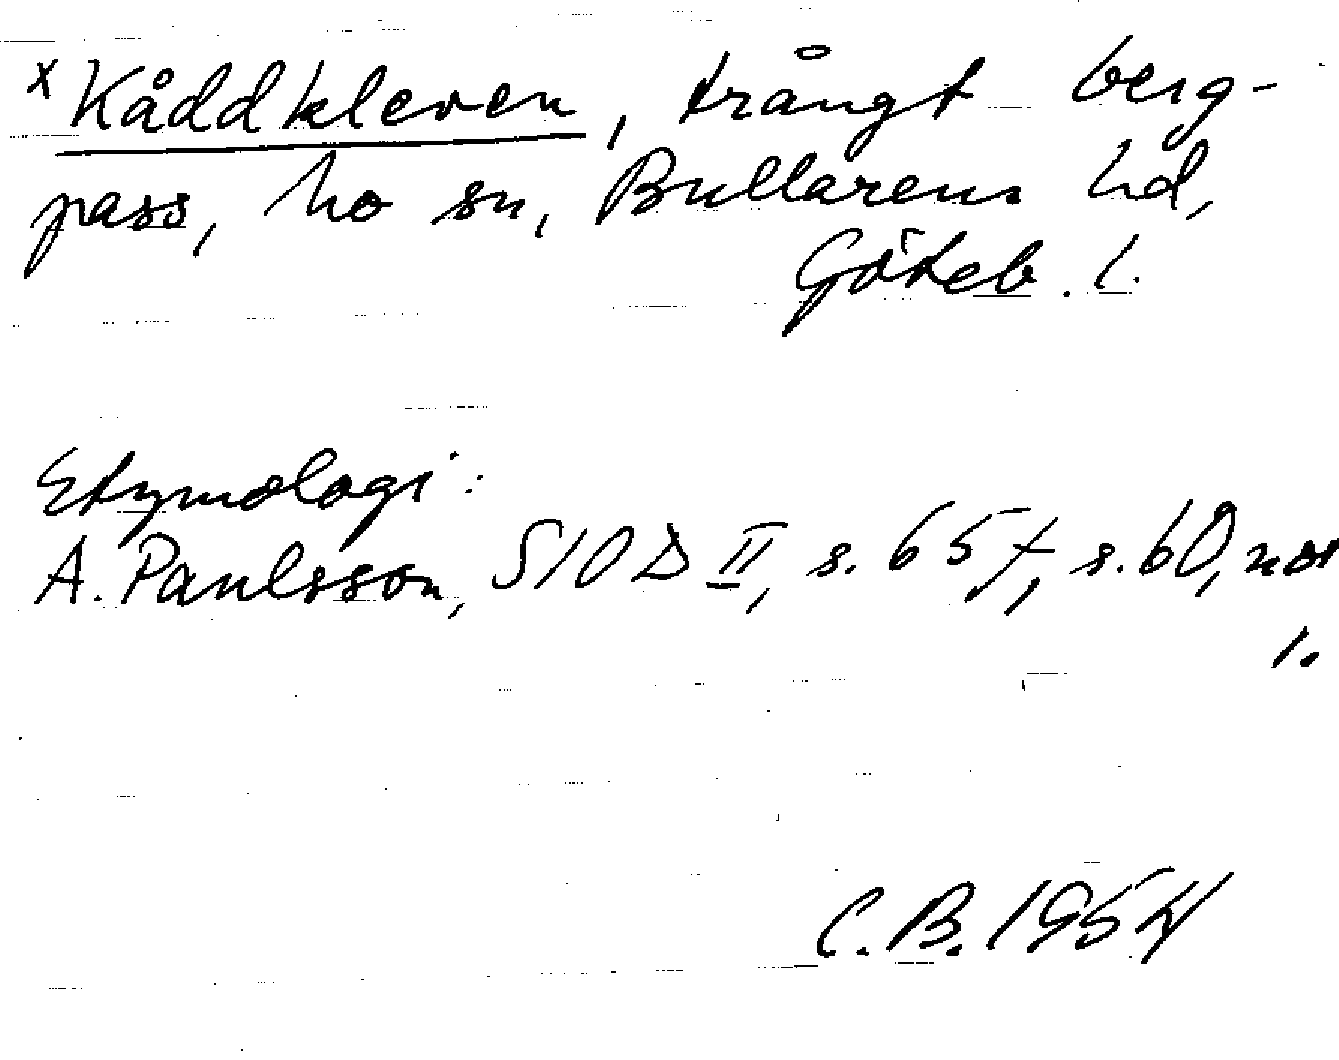 x Kåddkleven, trångt berg-
pass, Mo sn, Bullarens hd,
Göteb. l.
Etymologi:
A. Paulsson, SIOD II, s. 65 f, s. 60, not
1.
C. B. 1954